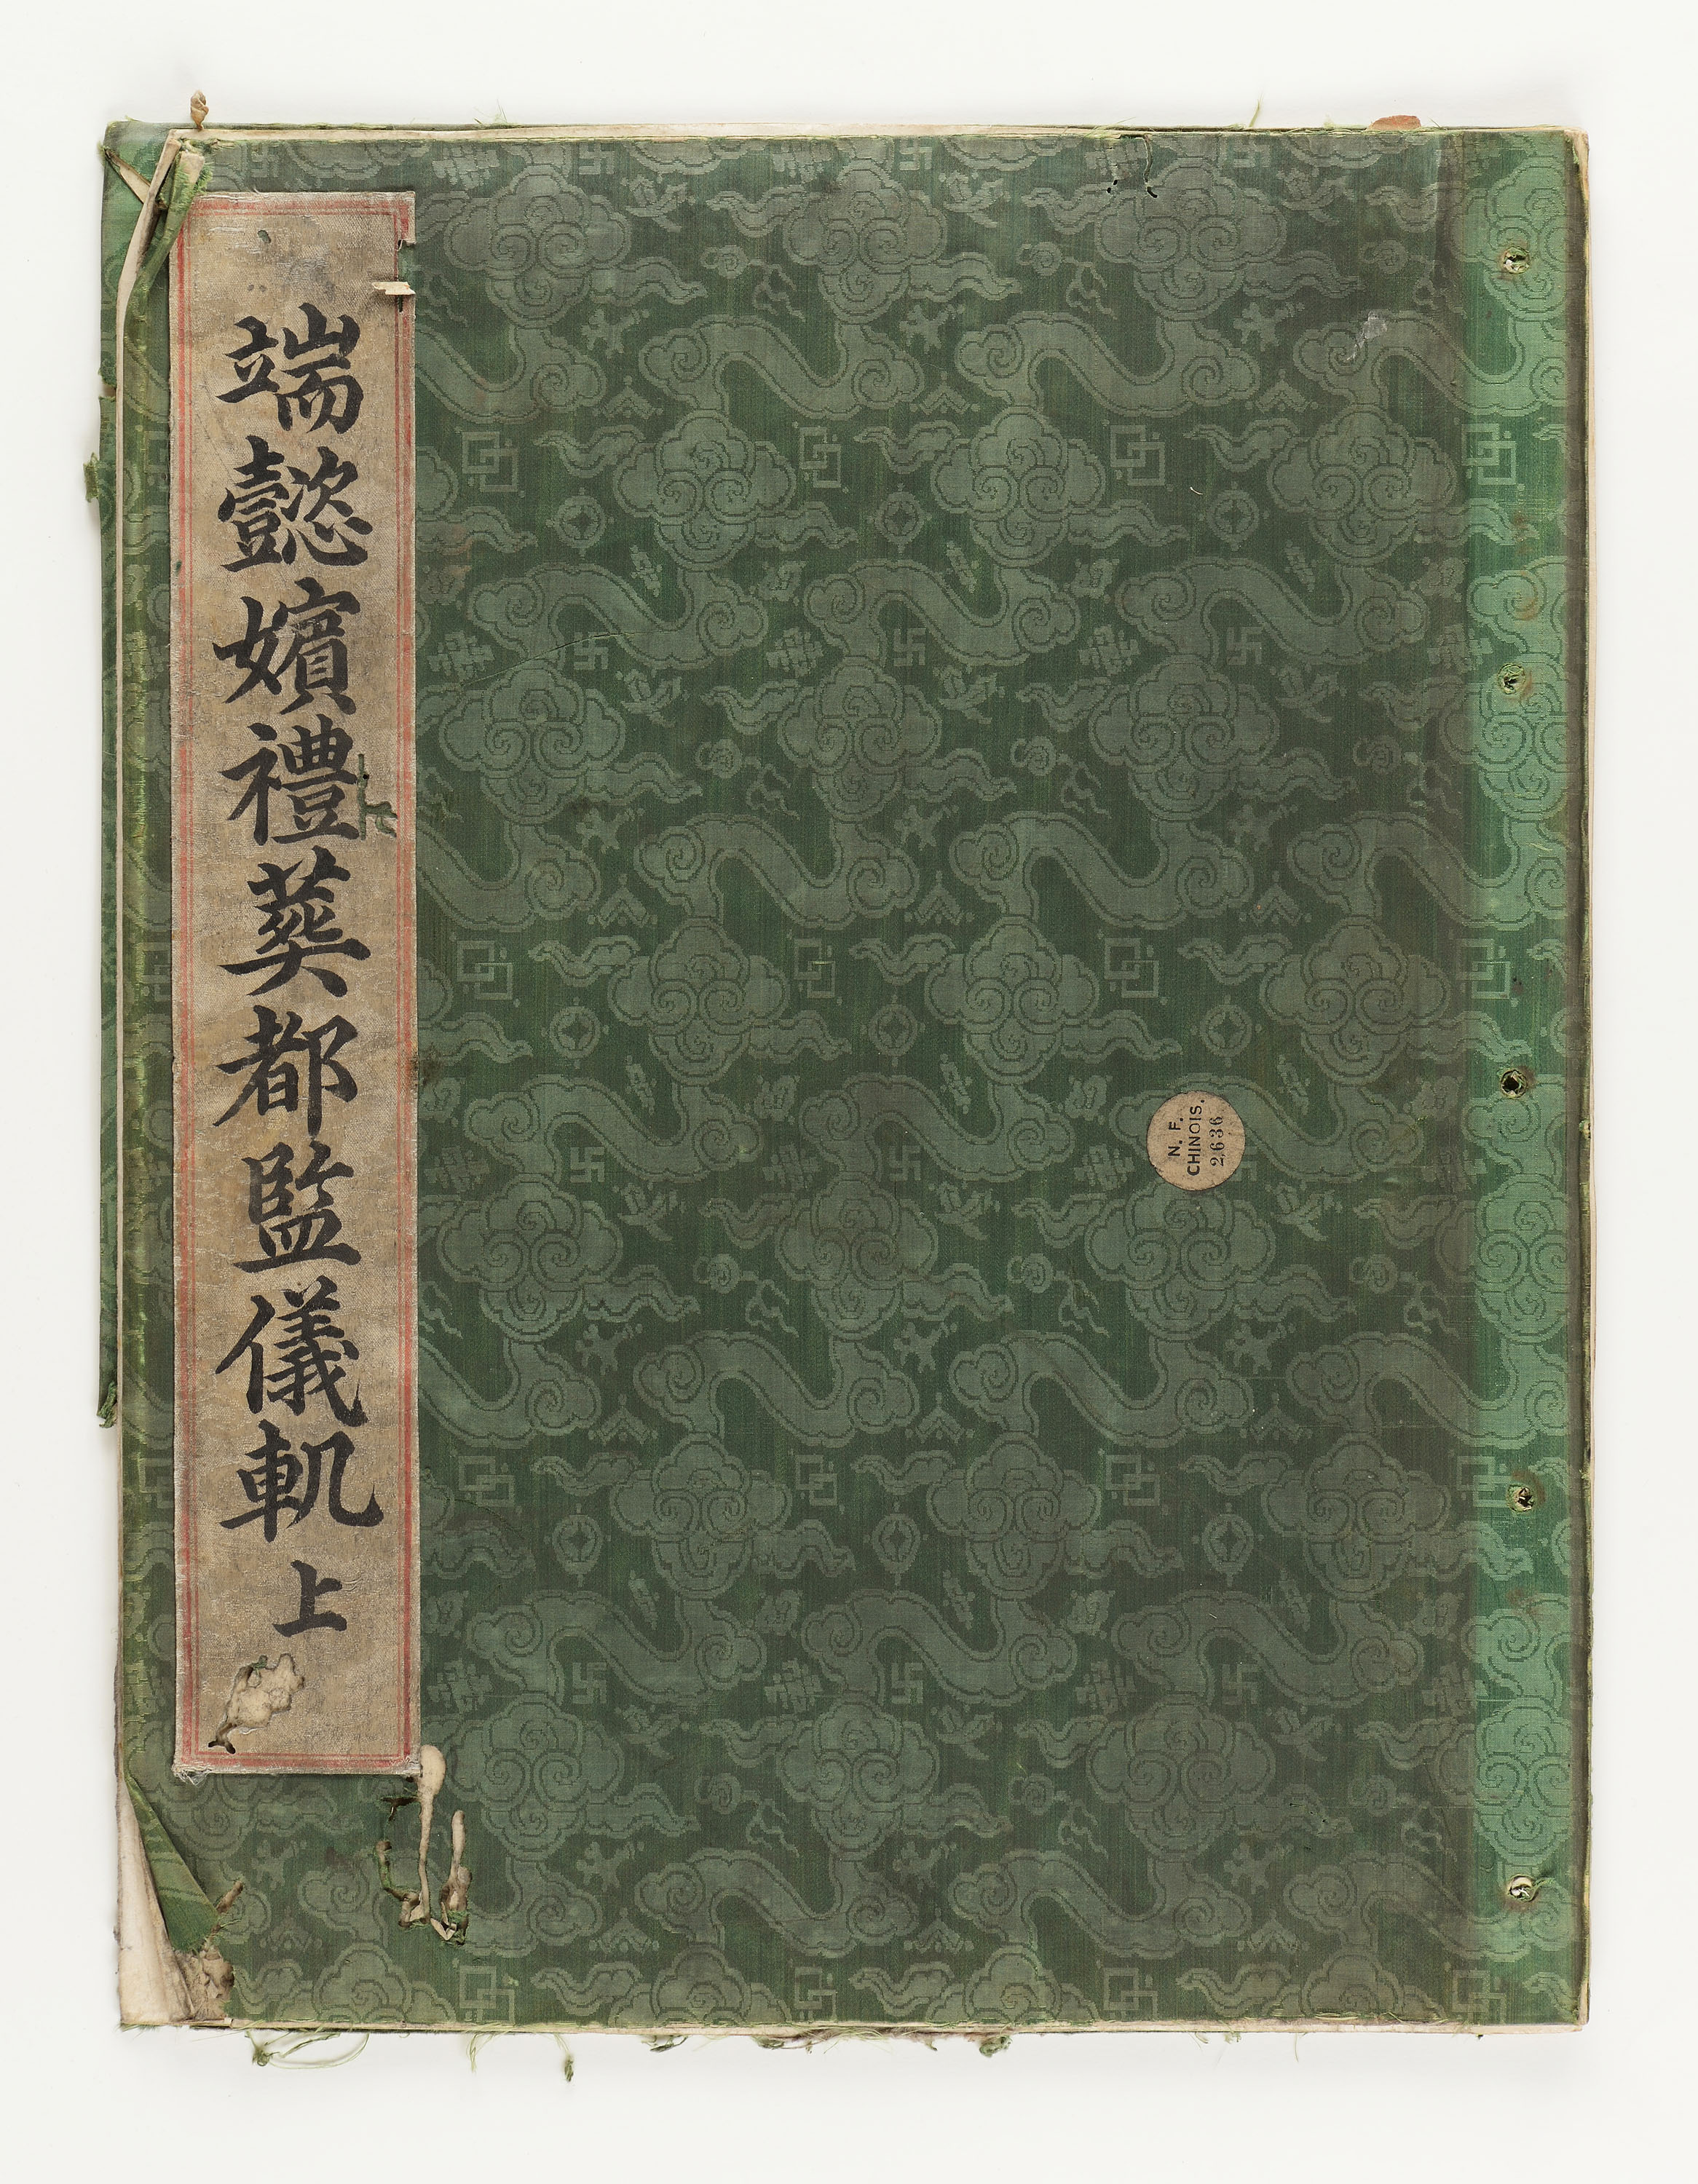 端懿嬪禮葬都監儀軌 上
N. F.
CHINOIS.
2,636